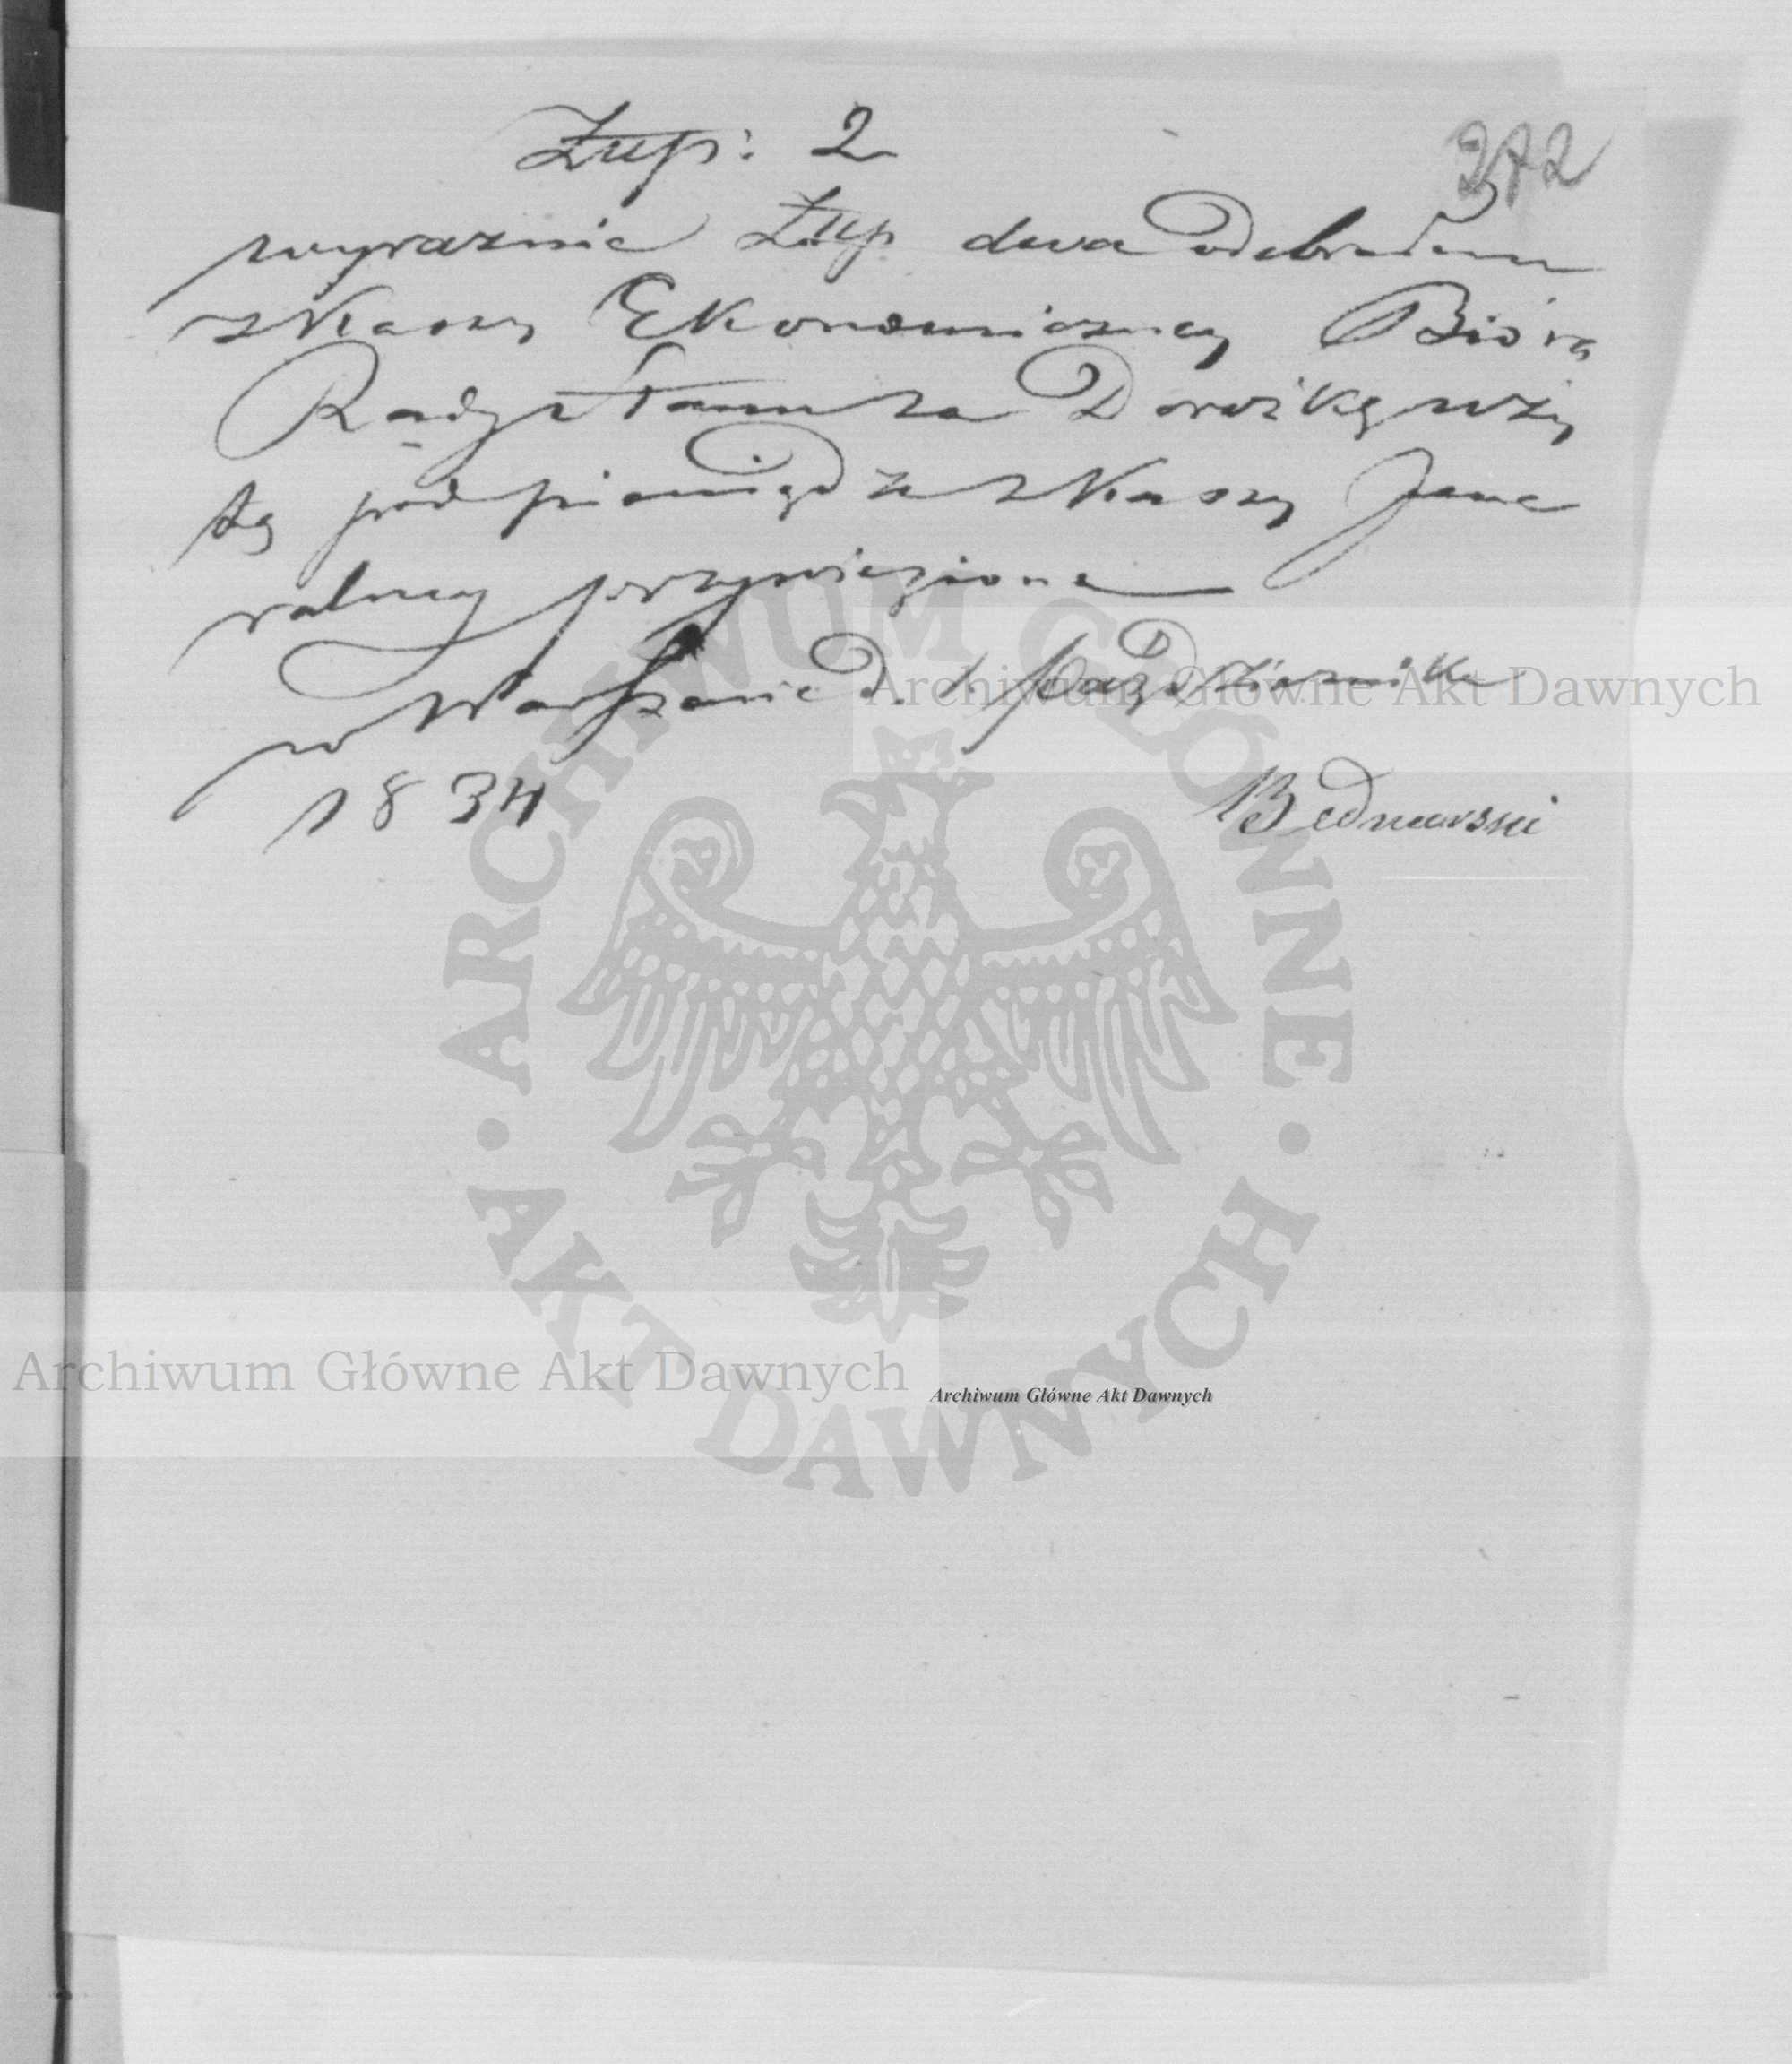 Złłp: 2
272
wyraznie Złłp dwa odebrałem
z Kassy Ekonomiczney Bióra
Rady Stanu za Dorożkę uży
tą pod pieniądze z Kassy Jene
ralney przywiezione
w Warszawie D. 1. Października
1834
Bednarski
ARCHIWUM GŁÓWNE
AKT DAWNYCH
Archiwum Główne Akt Dawnych
Archiwum Główne Akt Dawnych
Archiwum Główne Akt Dawnych